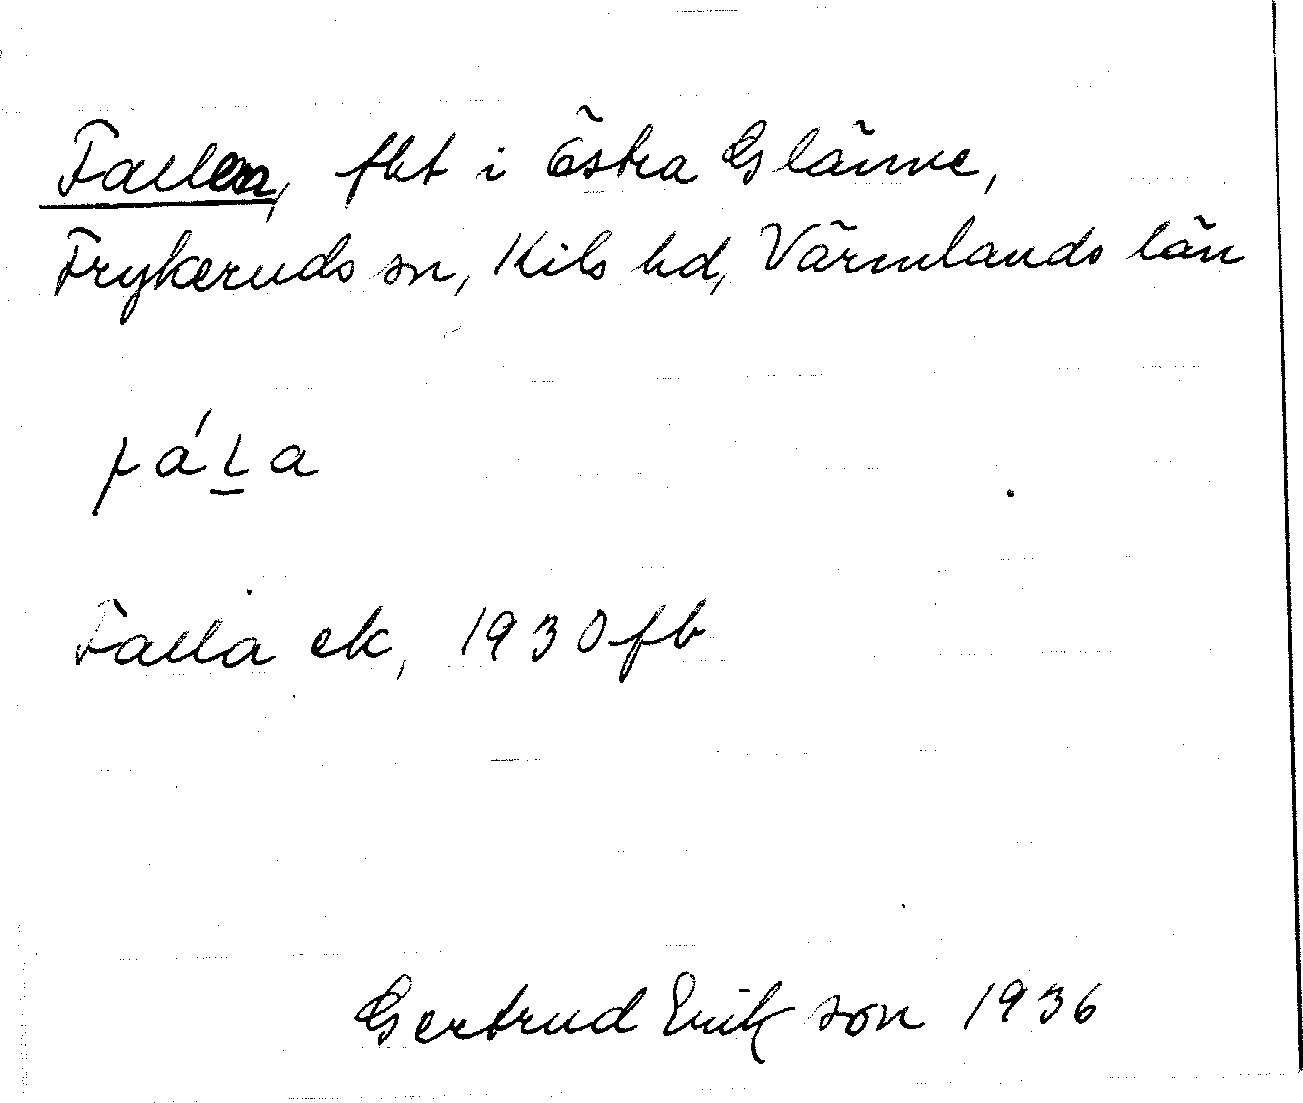 Fallen, fht i Östra Glänne,
Frykeruds sn, Kils hd, Värmlands län
fáʟ̲a
Falla ek, 1930 fb
Gertrud Erikson 1936